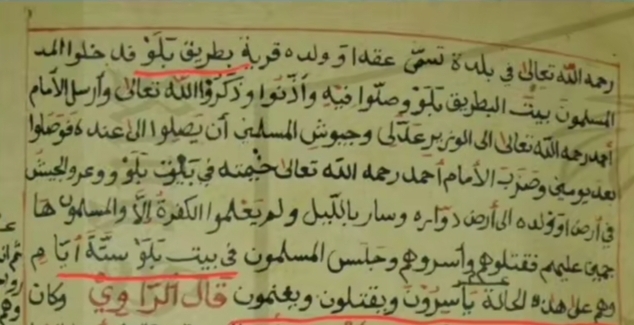 رحمه الله تعالى في بلدة تسمى عقه او ولده قربة بطريق بَلَوْ فدخلوا المد
المسلمون بيت البطريق بَلَوْ وصلّوا فيه وأذّنوا وذكروا الله تعالى وأرسل الأمام
أحمد رحمه الله تعالى الى الوزير عدلى وجيوش المسلمين أن يصلوا الى عنده فوصلوا
بعد يومين وضرب الأمام أحمد رحمه الله تعالى خيمته في بلو ووعر والجيش
في أرض اوو ولده الى أرض دواره وسار بالليل ولم يعلموا الكفرة إلّا والمسلمون ها
جمين عليهم فقتلوهم وأسروهم وجلس المسلمون في بيت بَلَوْ ستّة أيّام
وهم على هذه الحالة يأسرون ويقتلون ويغنمون قال الراوي وكان